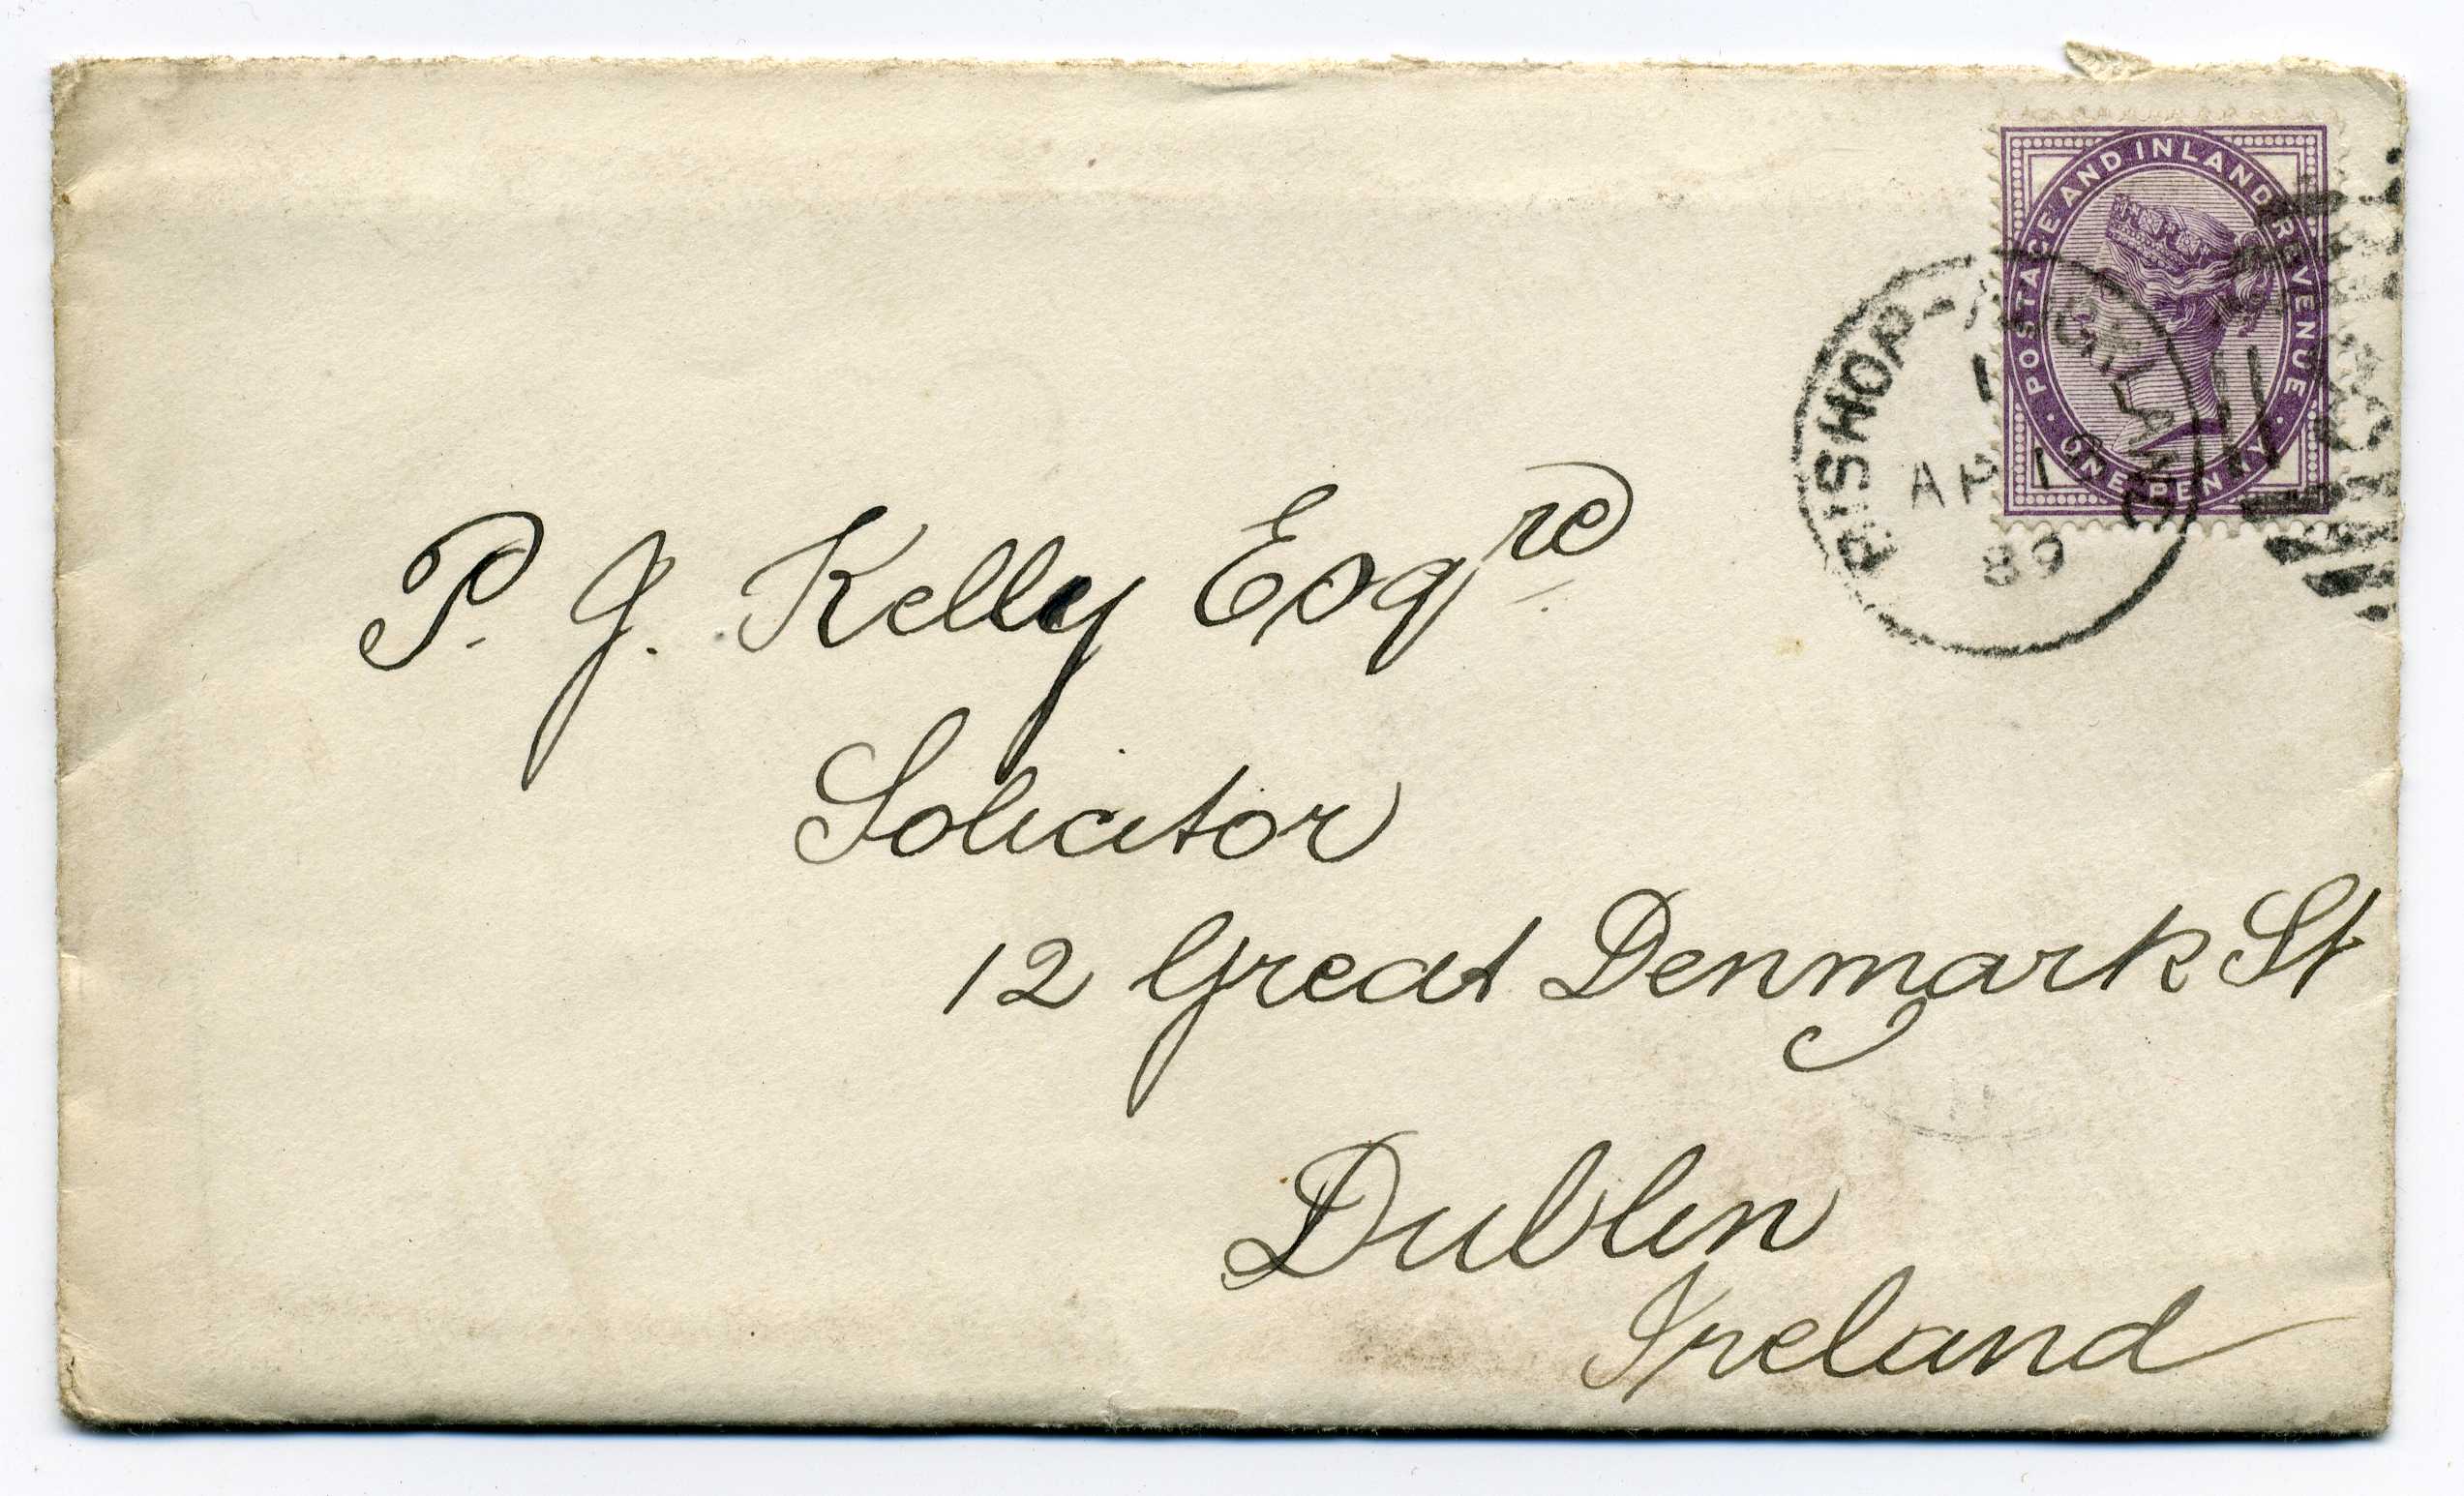 POSTAGE AND INLAND REVENUE
ONE PENNY
BISHOP-AUCKLAND
1
AP 1
89
P. J. Kelly Esqre
Solicitor
12 Great Denmark St
Dublin
Ireland